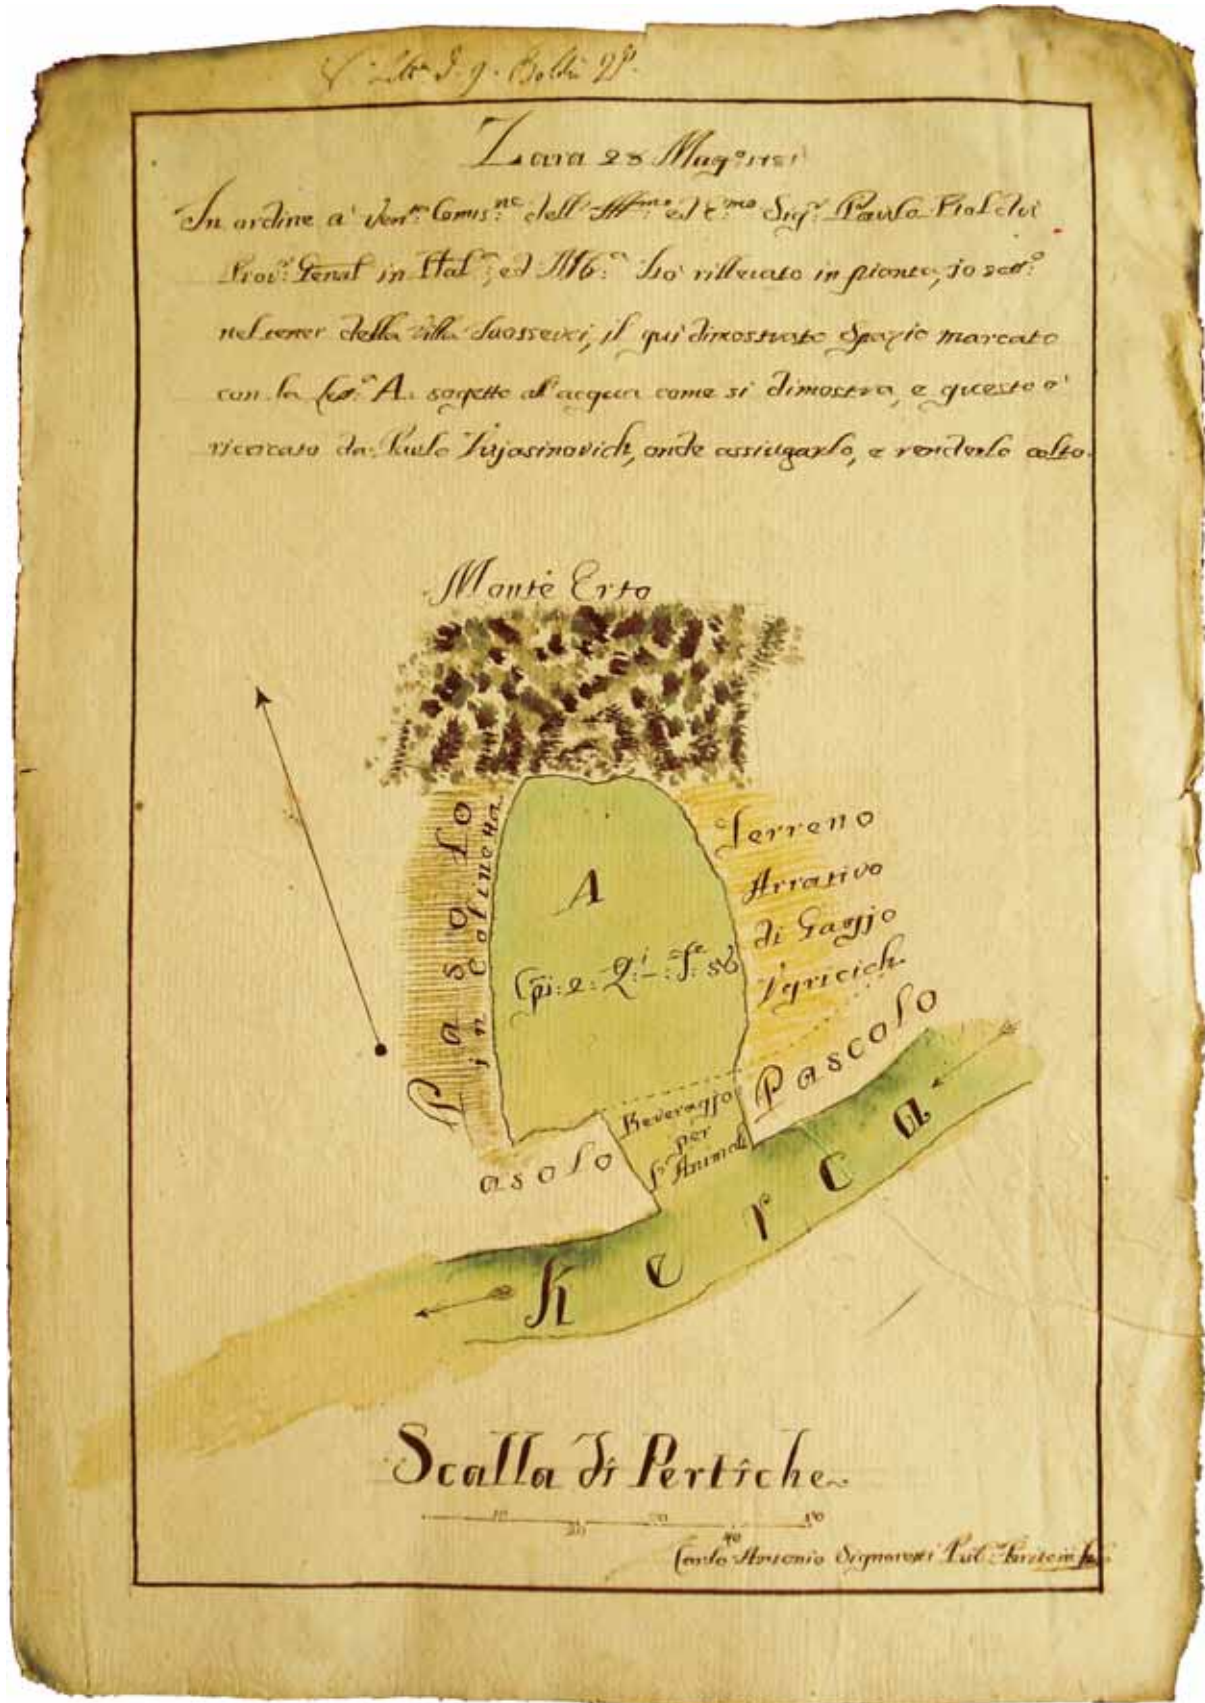 Zara 28 Mag:o 1781
In ordine a' Ven:te Comis:ne dell' Ill:mo ed E:mo Sig:r Paulo Boldù
Prov:r Genal in Dal:a, ed Alb:a hò rillevato in pianta, jo sott:o
nel tener della villa Suossevci, il qui dimostrato Spazio marcato
con la Let:a A. sogetto al' acqua come si dimostra, e questo è
ricercato da Paulo Vujasinovich, onde assiugarlo, e renderlo colto.
Monte Erto
Pasolo
in Colinetta
A
Cpi: 2: Q:i — : fe: 56
Terreno
Arrativo
di Gargjo
Vgricich
Pascolo
Beveragjo
per
gl' Animali
asolo
Kerca
Scalla di Pertiche
10 20 30 40 50
Carlo Antonio Signoretti Pub:o Perito